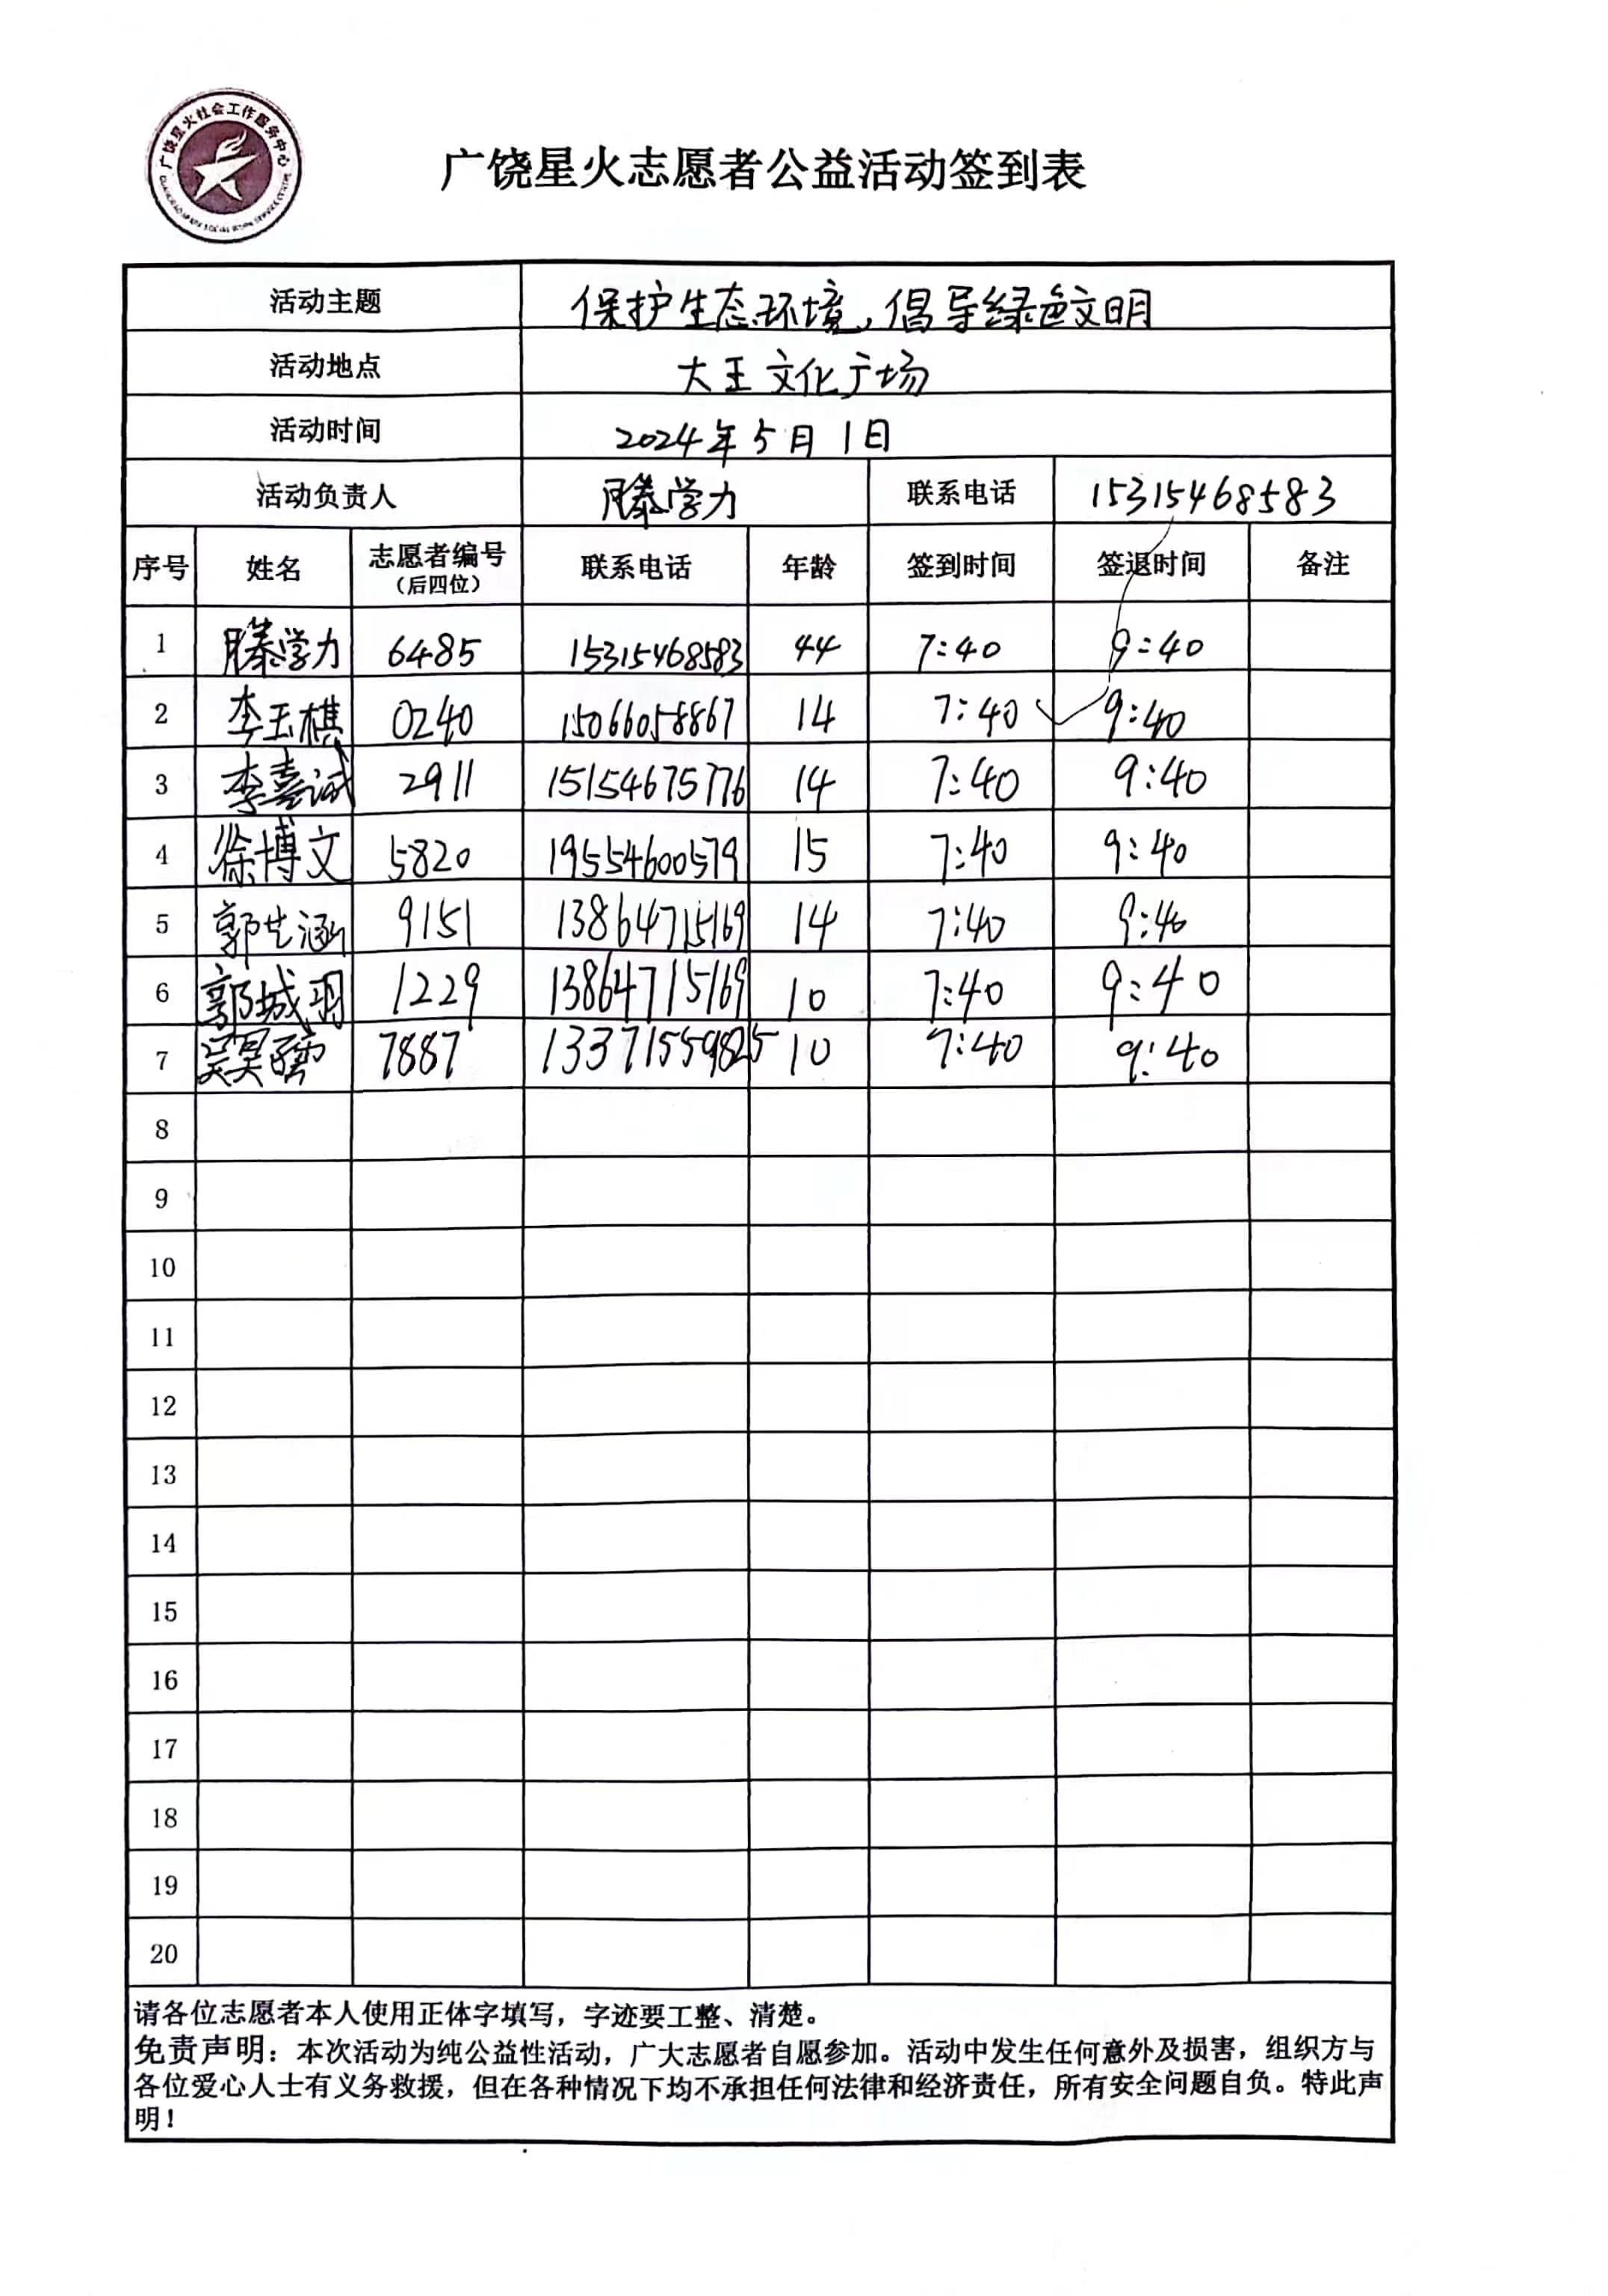 广饶星火社会工作服务中心
广饶星火志愿者公益活动签到表
活动主题 保护生态环境,倡导绿色文明
活动地点 大王文化广场
活动时间 2024年5月1日
活动负责人 滕学力 联系电话 15315468583
序号 姓名 志愿者编号 联系电话 年龄 签到时间 签退时间 备注
(后四位)
1 滕学力 6485 15315468583 44 7:40 9:40
2 李玉棋 0240 15066058867 14 7:40 9:40
3 李嘉诚 2911 15154675776 14 7:40 9:40
4 徐博文 5820 19554600579 15 7:40 9:40
5 郭艺涵 9151 13864715169 14 7:40 9:40
6 郭城羽 1229 13864715169 10 7:40 9:40
7 吴昊 7887 10 7:40 9:40
8
9
10
11
12
13
14
15
16
17
18
19
20
请各位志愿者本人使用正体字填写，字迹要工整、清楚。
免责声明：本次活动为纯公益性活动，广大志愿者自愿参加。活动中发生任何意外及损害，组织方与
各位爱心人士有义务救援，但在各种情况下均不承担任何法律和经济责任，所有安全问题自负。特此声
明！